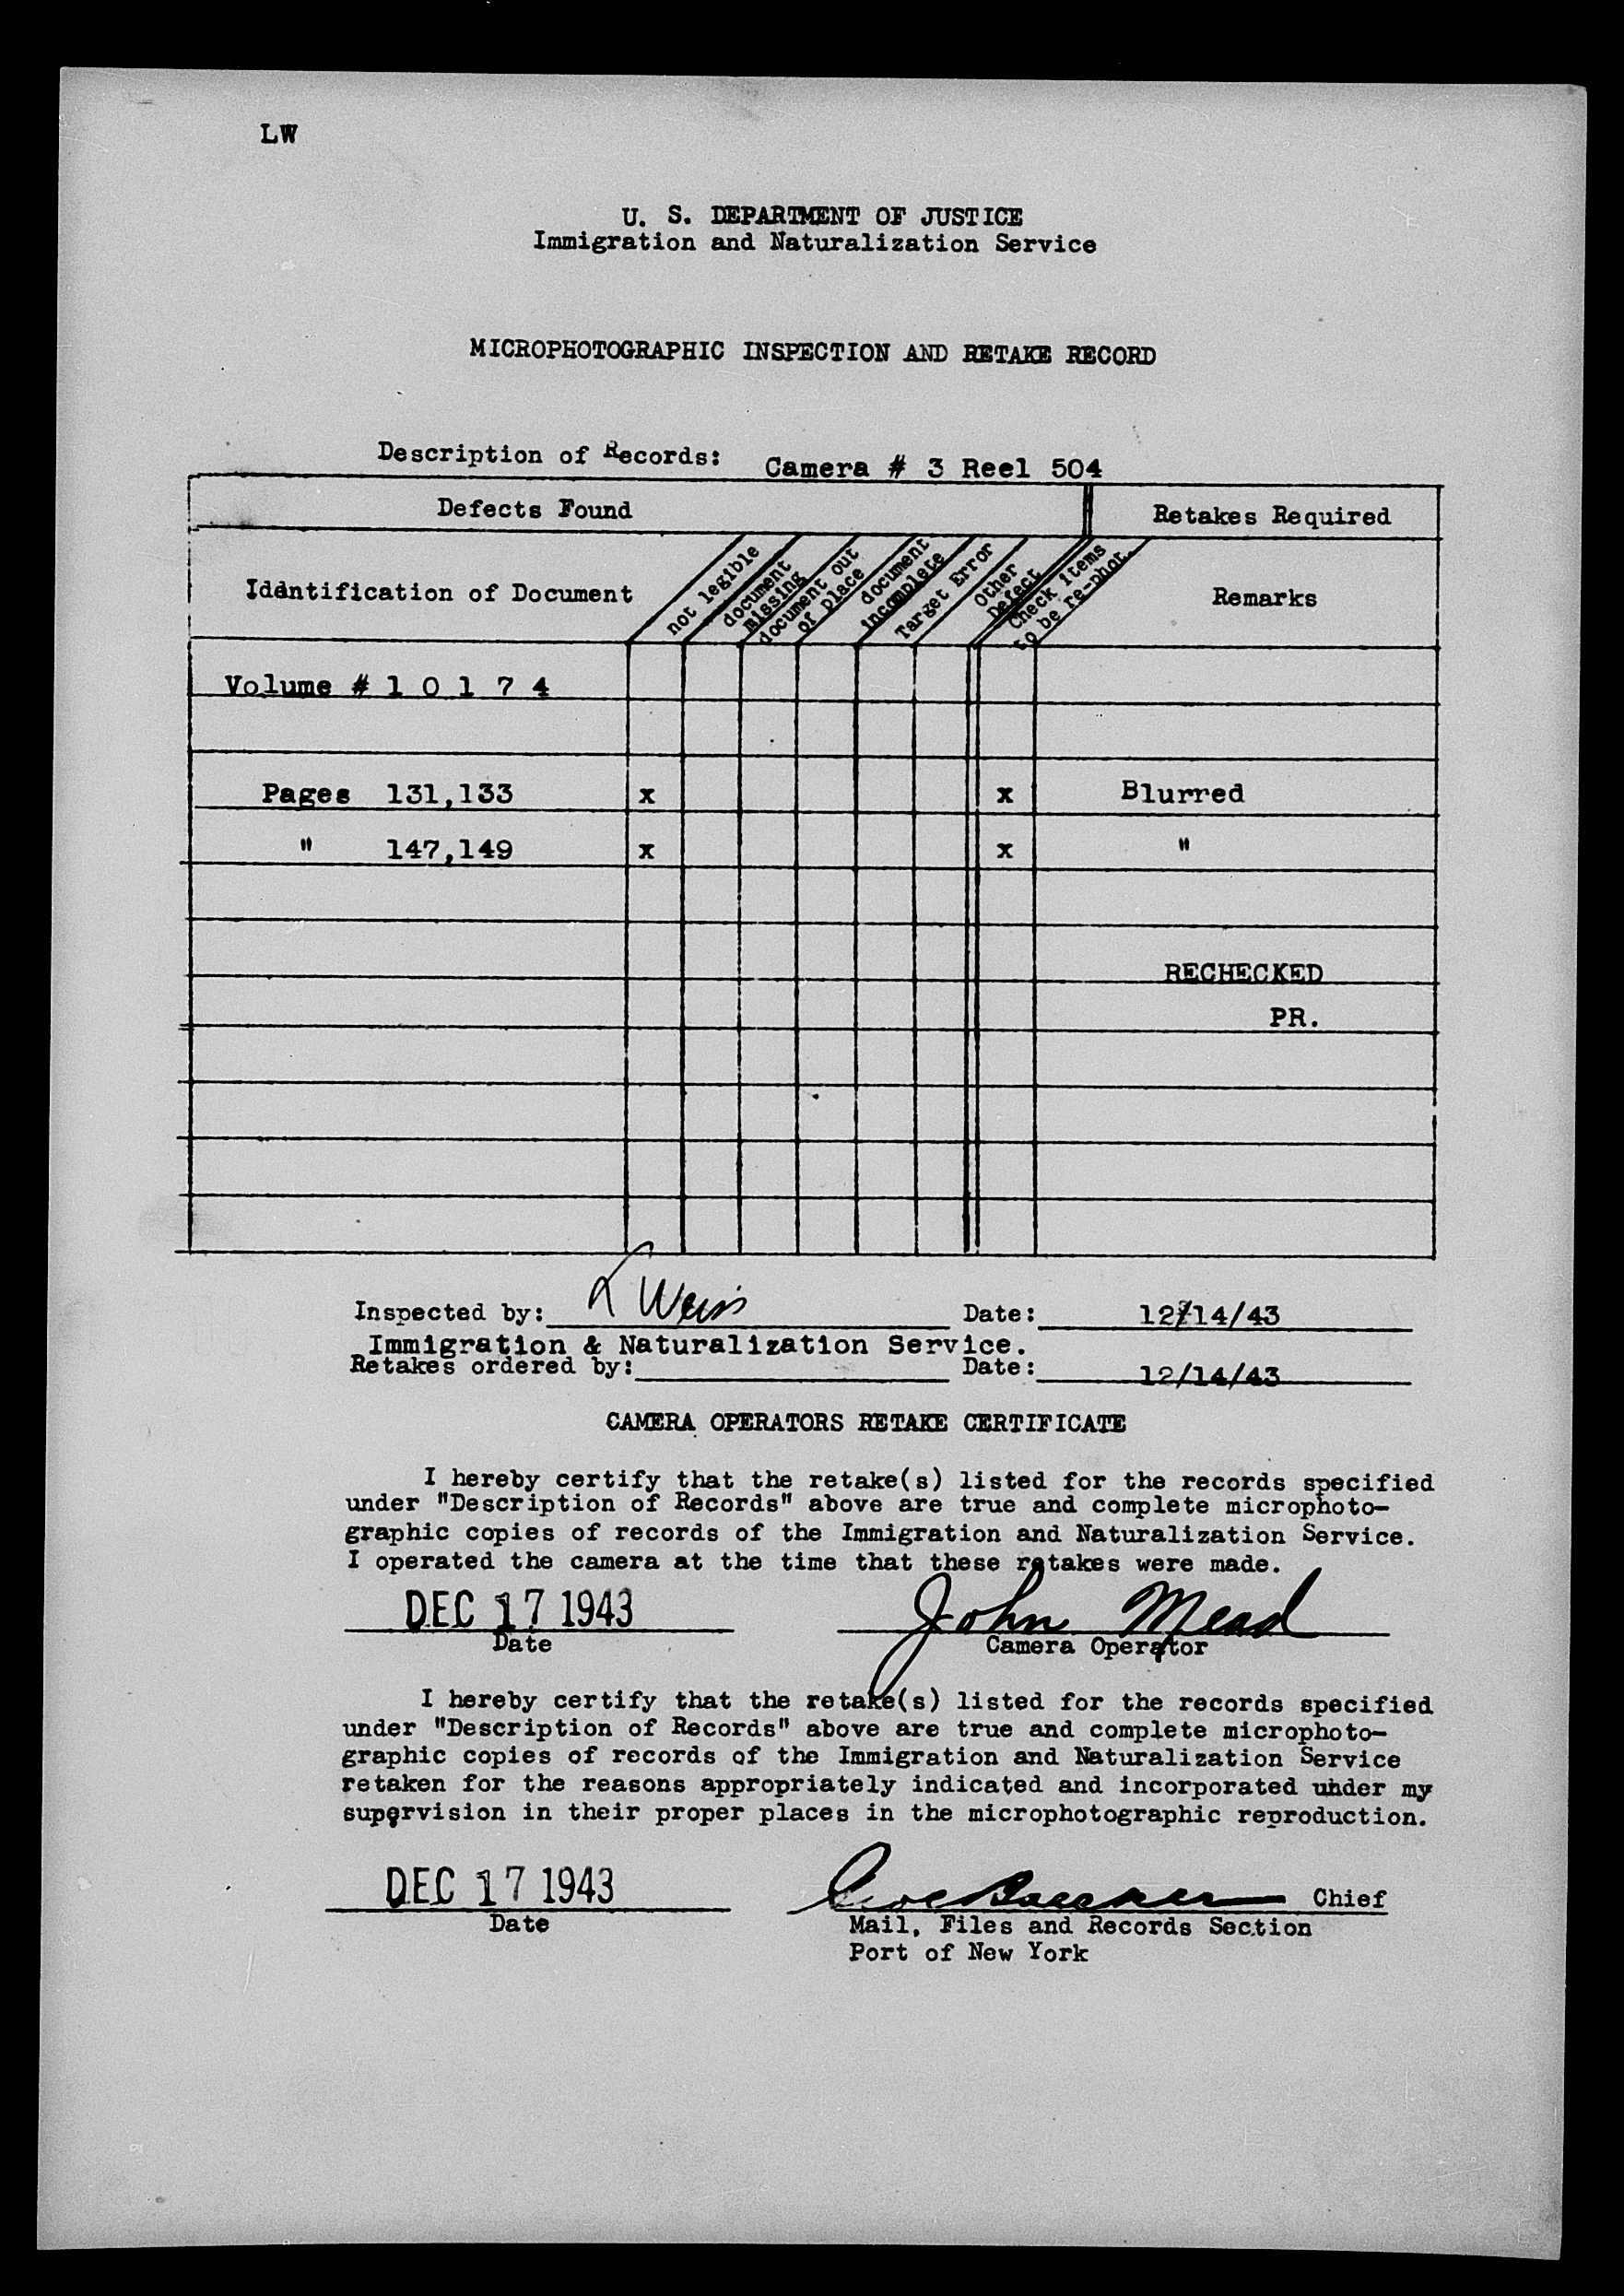 LW
U. S. DEPARTMENT OF JUSTICE
Immigration and Naturalization Service
MICROPHOTOGRAPHIC INSPECTION AND RETAKE RECORD
Description of Records: Camera # 3 Reel 504
Defects Found
Retakes Required
Identification of Document
not legible
document missing
document out of place
document incomplete
Target Error
Other Defect
Check items to be re-phot.
Remarks
Volume # 1 0 1 7 4
Pages 131,133 x x Blurred
" 147,149 x x "
RECHECKED
PR.
Inspected by: Weiss Date: 12/14/43
Immigration & Naturalization Service.
Retakes ordered by: Date: 12/14/43
CAMERA OPERATORS RETAKE CERTIFICATE
I hereby certify that the retake(s) listed for the records specified
under "Description of Records" above are true and complete microphoto-
graphic copies of records of the Immigration and Naturalization Service.
I operated the camera at the time that these retakes were made.
DEC 17 1943 John Mead
Date Camera Operator
I hereby certify that the retake(s) listed for the records specified
under "Description of Records" above are true and complete microphoto-
graphic copies of records of the Immigration and Naturalization Service
retaken for the reasons appropriately indicated and incorporated under my
supervision in their proper places in the microphotographic reproduction.
DEC 17 1943 Chief
Date Mail, Files and Records Section
Port of New York